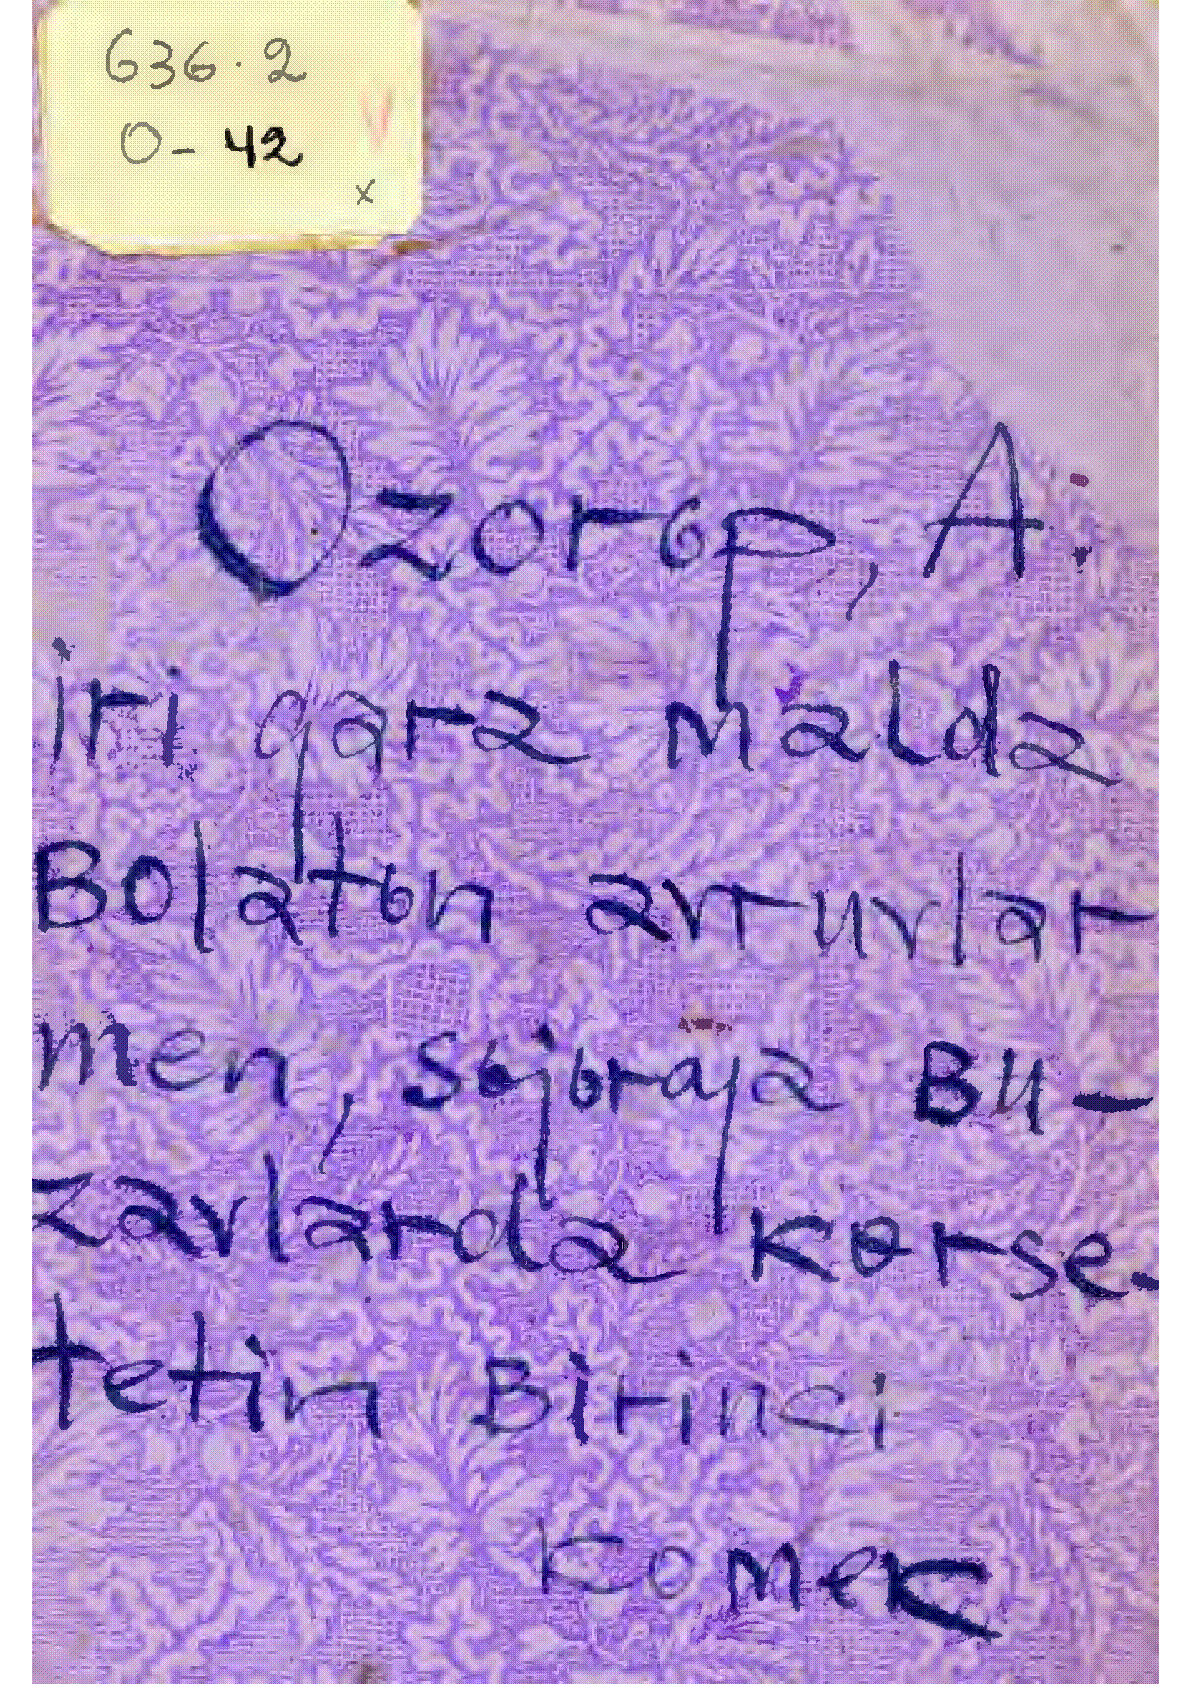 636.2
O-42
x
Ozorьp, A:
Iri qara malda
Bolatьn avruvlar
men, sьjьraja Bu-
zavlarda kɵrse-
tetin Birinci
komek